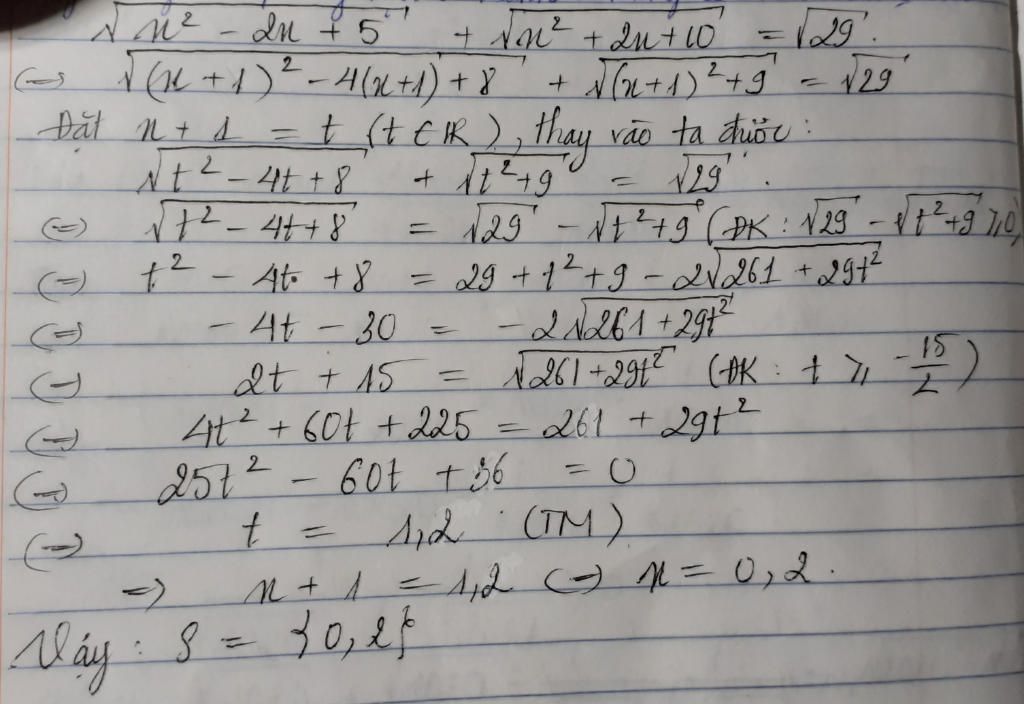 √(x² - 2x + 5) + √(x² + 2x + 10) = √29.
(=) √((x + 1)² - 4(x+1) + 8) + √((x+1)² + 9) = √29
Đặt x + 1 = t (t ∈ ℝ), thay vào ta được:
√(t² - 4t + 8) + √(t² + 9) = √29.
(=) √(t² - 4t + 8) = √29 - √(t² + 9) (ĐK: √29 - √(t² + 9) ⩾ 0)
(=) t² - 4t + 8 = 29 + t² + 9 - 2√(261 + 29t²)
(=) - 4t - 30 = - 2√(261 + 29t²)
(=) 2t + 15 = √(261 + 29t²) (ĐK: t ⩾ -15/2)
(=) 4t² + 60t + 225 = 261 + 29t²
(=) 25t² - 60t + 36 = 0
(=) t = 1,2 (TM)
=> x + 1 = 1,2 (=) x = 0,2.
Vậy: S = {0,2}